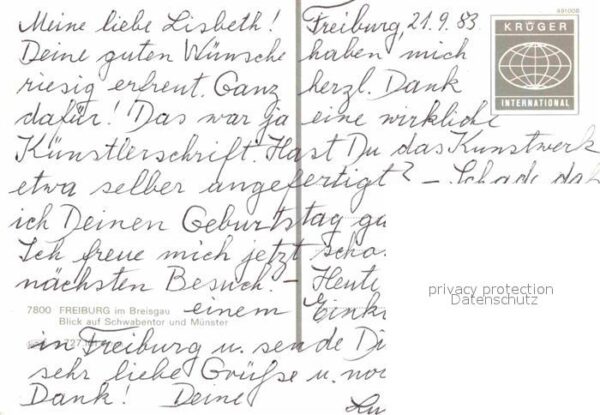 Meine liebe Lisbeth! Freiburg, 21.9.83
Deine guten Wünsche haben mich
riesig erfreut. Ganz herzl. Dank
dafür! Das war ja eine wirkliche
Künstlerschrift. Hast Du das Kunstwerk
etwa selber angefertigt? – Schade, daß
ich Deinen Geburtstag
Ich freue mich jetzt scho
nächsten Besuch! – Heute
einem Eink
in Freiburg u. sende Di
sehr liebe Grüße u. no
Dank! Deine
KRÜGER
INTERNATIONAL
7800 FREIBURG im Breisgau
Blick auf Schwabentor und Münster
privacy protection
Datenschutz